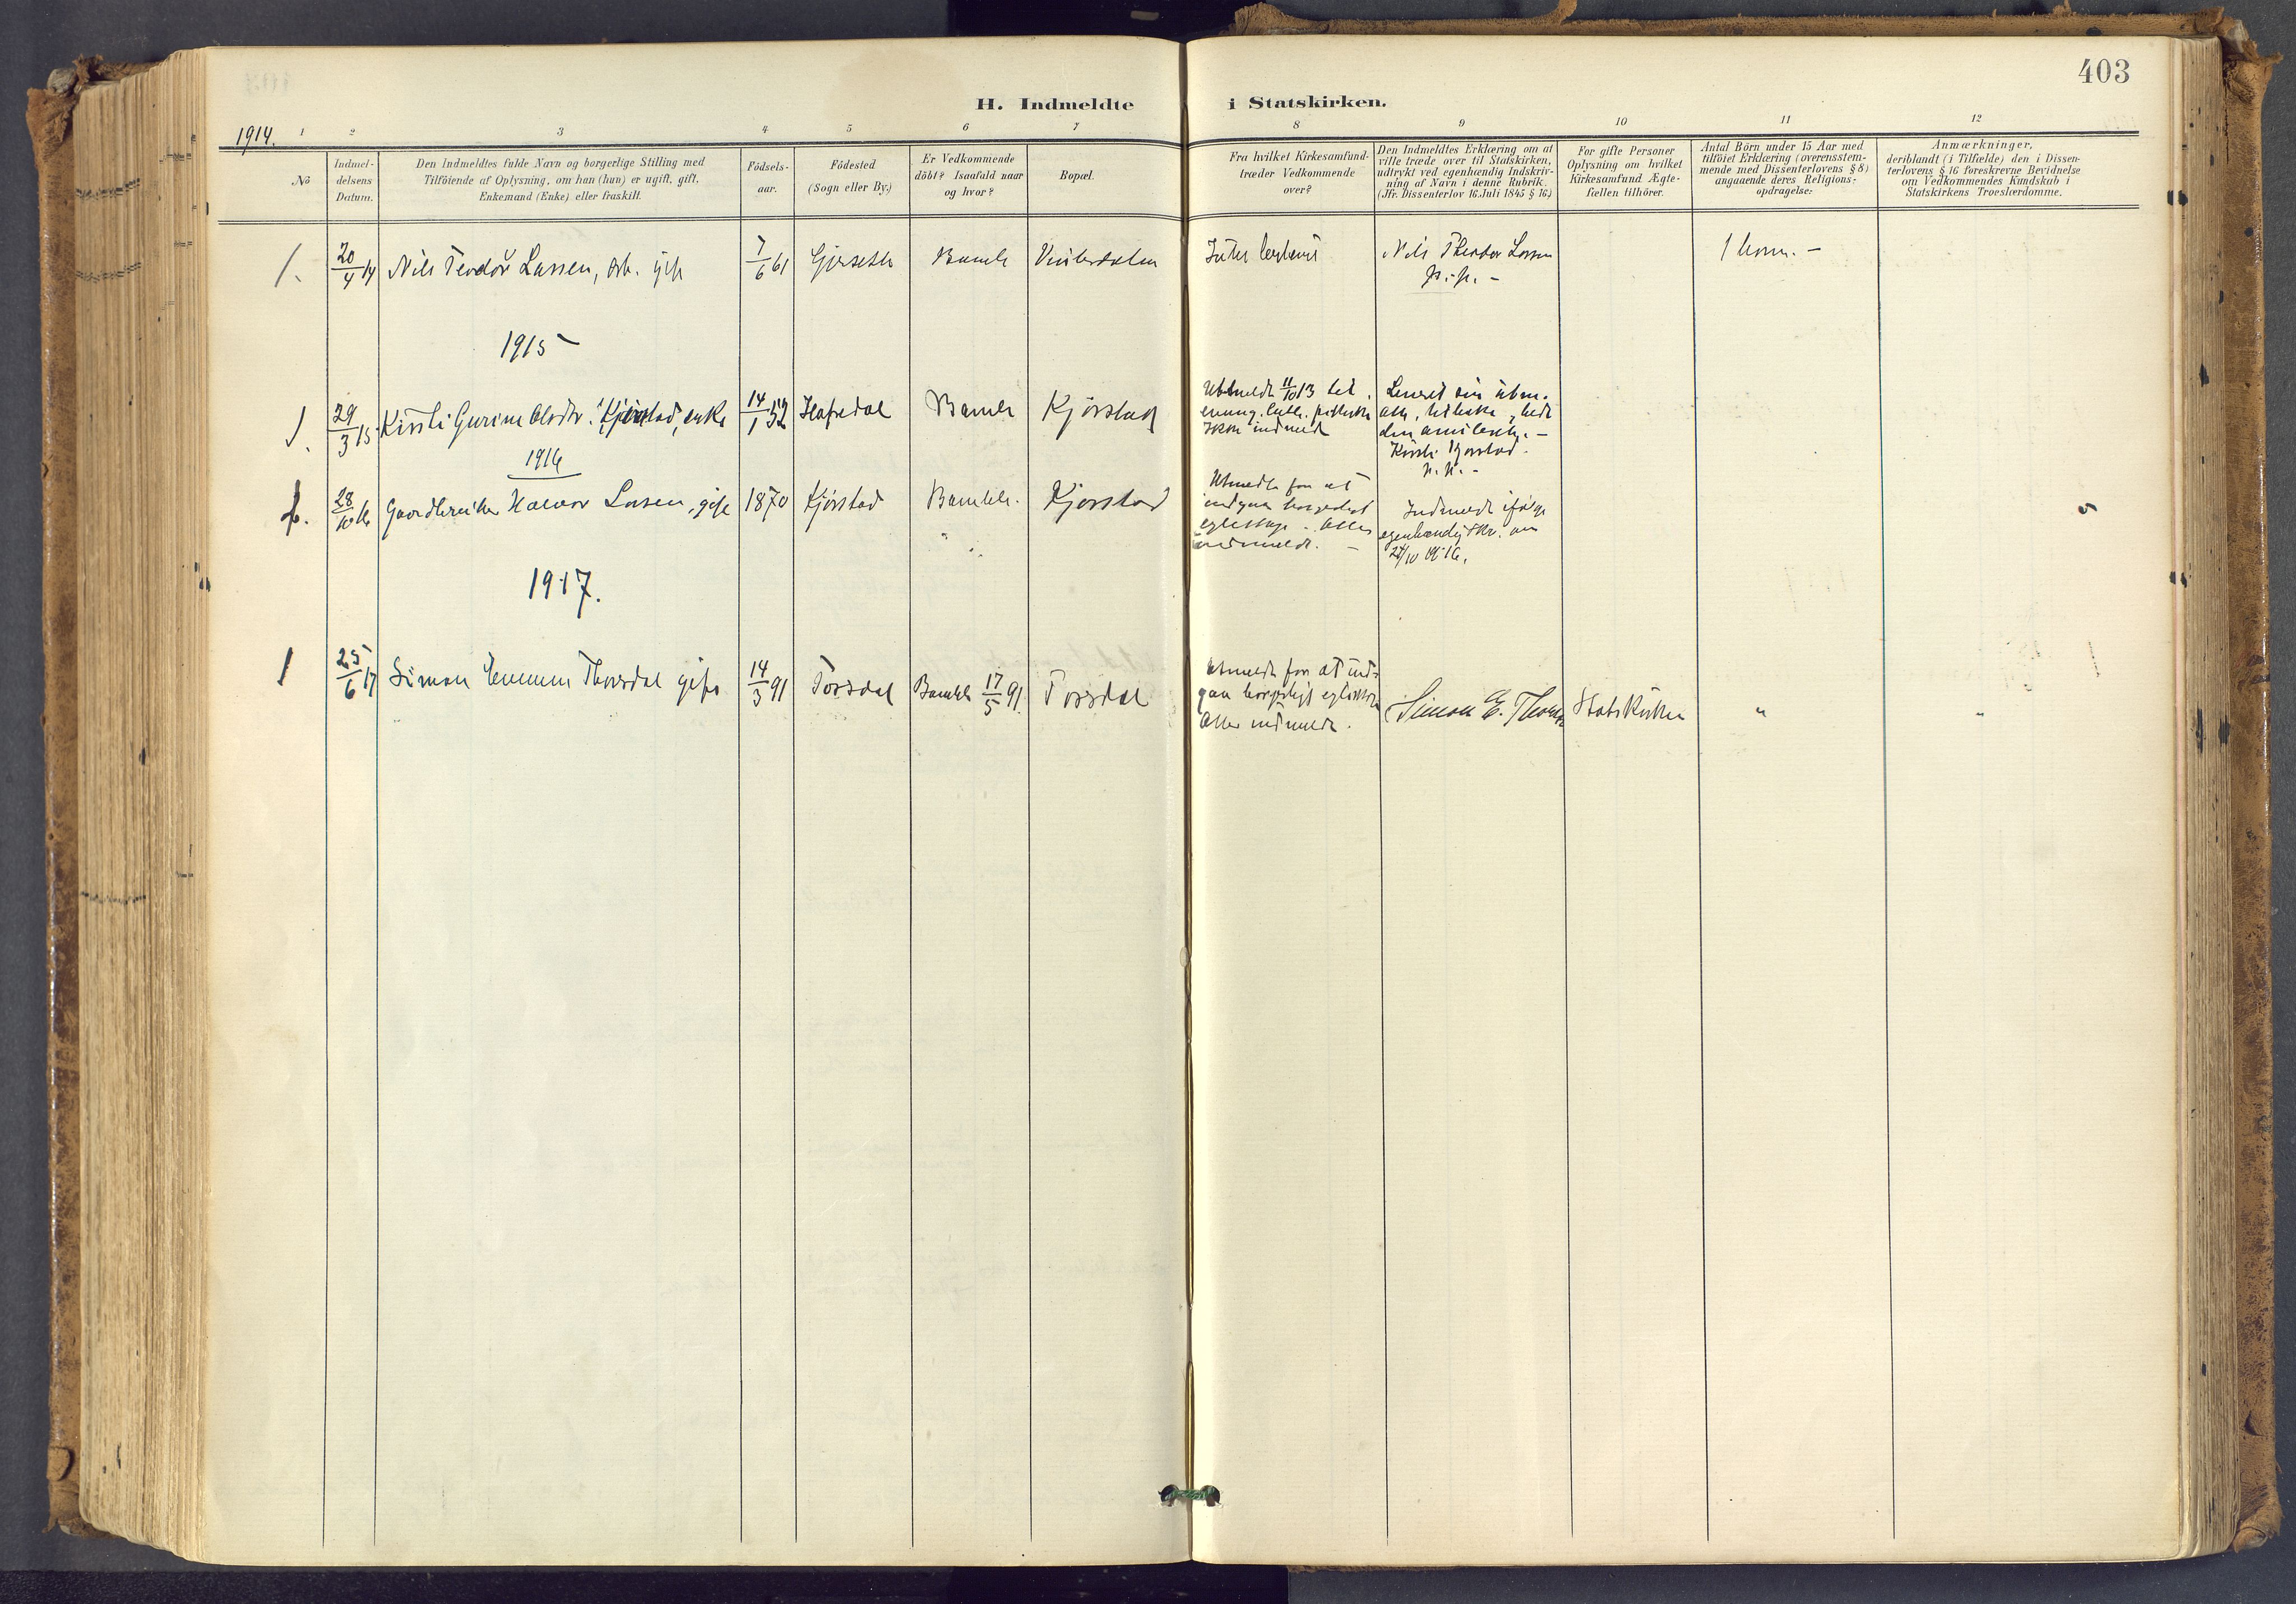 403
H. Indmeldte i Statskirken.
1914.
1 2 3 4 5 6 7 8 9 10 11 12
No
Indmel-
delsens
Datum.
Den Indmeldtes fulde Navn og borgerlige Stilling med
Tilföiende af Oplysning, om han (hun) er ugift, gift,
Enkemand (Enke) eller fraskilt.
Födsels-
aar.
Födested
(Sogn eller By.)
Er Vedkommende
döbt? Isaafald naar
og hvor?
Bopæl.
Fra hvilket Kirkesamfund
træder Vedkommende
over?
Den Indmeldtes Erklæring om at
ville træde over til Statskirken,
udtrykt ved egenhændig Indskriv-
ning af Navn i denne Rubrik.
(Jfr. Dissenterlov 16 Juli 1845 § 16.)
For gifte Personer
Oplysning om hvilket
Kirkesamfund Ægte-
fællen tilhörer.
Antal Börn under 15 Aar med
tilföiet Erklæring (overensstem-
mende med Dissenterlovens § 8)
angaaende deres Religions-
opdragelse.
Anmærkninger,
deriblandt (i Tilfælde) den i Dissen-
terlovens § 16 foreskrevne Bevidnelse
om Vedkommendes Kundskab i
Statskirkens Troeslærdomme.
1. 20/4 14 Nils Teodor Larsen, arb. gift 7/6 61 Bamble
Nils Theodor Larsen
1915
1. 29/3 15 Kirsti Gurine Olsdtr. Kjørstad, enke 14/1 52 Hafredal Bamble Kjørstad
Utmeldt 11/10 13
indmeldt
Kirsti Kjørstad.
1916
1. 28/10 16 Gaardbruker Halvor Larsen, gift 1870 Kjørstad Bamble. Kjørstad
Utmeldt for at
indgaa borgerligt
egteskap. Atter
indmeldt. –
Indmeldt ifølge
egenhændig skr. av
1917.
1 25/6 17 Simon Thorsdal gift 14/3 91 Torsdal Bamble 17/5 91. Torsdal
Utmeldt for at ind-
gaa borgerligt
Atter indmeldt.
Simon E. Thorsdal
Statskirken
" "